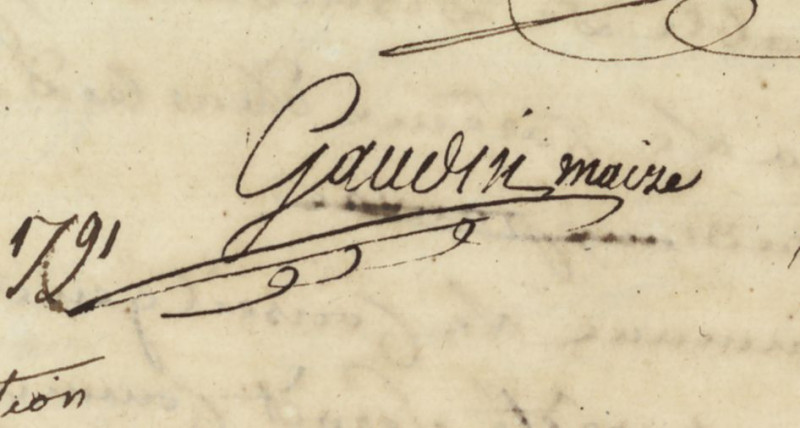 Gaudin maire
1791
tion